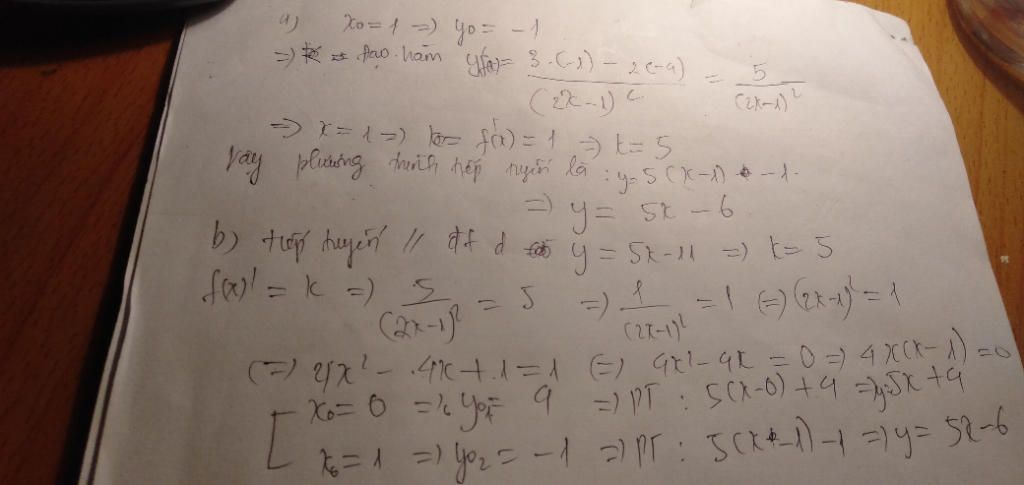 a) x₀ = 1 => y₀ = -1
=> đạo hàm y'(x) = \frac{3.(-1) - 2(-4)}{(2x-1)^2} = \frac{5}{(2x-1)^2}
=> x = 1 => k = f'(x) = 1 => k = 5
Vậy phương trình tiếp tuyến là : y = 5(x-1) - 1.
=> y = 5x - 6
b) tiếp tuyến // đt d y = 5x - 11 => k = 5
f(x)' = k => \frac{5}{(2x-1)^2} = 5 => \frac{1}{(2x-1)^2} = 1 (=) (2x-1)^2 = 1
(=) 4x² - 4x + 1 = 1 (=) 4x² - 4x = 0 => 4x(x-1) = 0
[ x₀ = 0 => y₀₁ = 4 => PT : 5(x-0) + 4 => y = 5x + 4
x₀ = 1 => y₀₂ = -1 => PT : 5(x-1) - 1 => y = 5x - 6